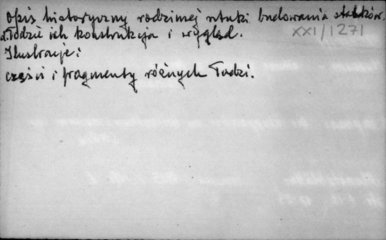 Opis historyczny rodzimej sztuki budowania statków
i łodzi ich konstrukcja i wygląd.
XXI/1271
Ilustracje:
części i fragmenty różnych łodzi.